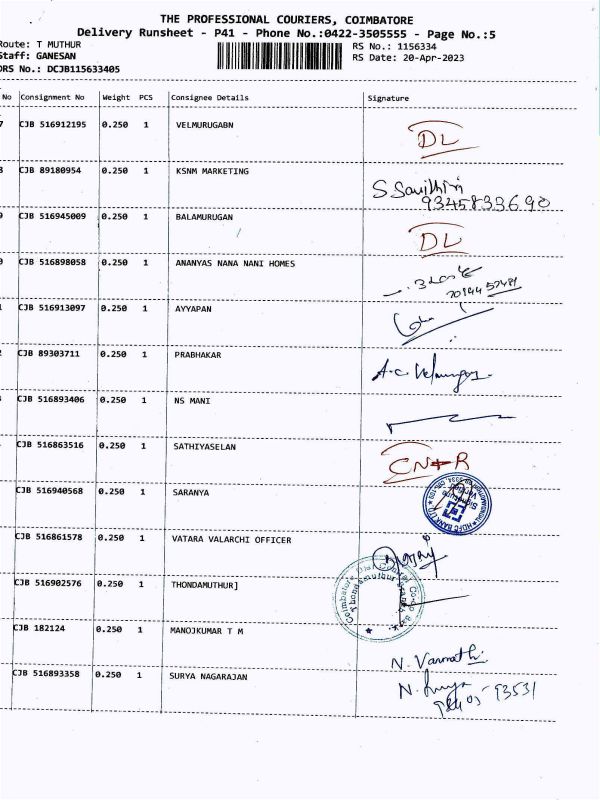 THE PROFESSIONAL COURIERS, COIMBATORE
Delivery Runsheet - P41 - Phone No.:0422-3505555 - Page No.:5
Route: T MUTHUR
RS No.: 1156334
Staff: GANESAN
RS Date: 20-Apr-2023
DRS No.: DCJB115633405
No Consignment No Weight PCS Consignee Details Signature
7 CJB 516912195 0.250 1 VELMURUGABN DL
8 CJB 89180954 0.250 1 KSNM MARKETING S Savithiri
9345833690
9 CJB 516945009 0.250 1 BALAMURUGAN DL
0 CJB 516898058 0.250 1 ANANYAS NANA NANI HOMES
1 CJB 516913097 0.250 1 AYYAPAN
2 CJB 89303711 0.250 1 PRABHAKAR A.C.
CJB 516893406 0.250 1 NS MANI
CJB 516863516 0.250 1 SATHIYASELAN
CJB 516940568 0.250 1 SARANYA
HDFC BANK LTD
CJB 516861578 0.250 1 VATARA VALARCHI OFFICER
CJB 516902576 0.250 1 THONDAMUTHUR]
Coimbatore Dist Central Co-op
Thondamuthur Branch
CJB 182124 0.250 1 MANOJKUMAR T M N. Varmathi
CJB 516893358 0.250 1 SURYA NAGARAJAN N. Surya
93531